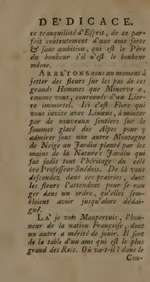 DÉDICACE.
ce tranquilité d'Esprit, de ce par-
fait contentement d'une ame forte
& sans ambition, qui est le Pére
du bonheur s'il n'est le bonheur
même.
ARRÊTONS nous un moment à
jetter des fleurs sur les pas de ces
grands Hommes que Minerve a,
comme vous, couronnés d'un Lier-
re immortel. Ici c'est Flore qui
vous invite avec Linnæus, à monter
par de nouveaux sentiers sur le
sommet glacé des Alpes pour y
admirer sous une autre Montagne
de Nèige un Jardin planté par les
mains de la Nature: Jardin que
fut jadis tout l'héritage du célé-
bre Professeur Suédois. De là vous
descendez dans ces prairies, dont
les fleurs l'attendent pour se ran-
ger dans un ordre, qu'elles sem-
bloient avoir jusqu'alors dédai-
gné.
LA' je vois Maupertuis, l'hon-
neur de la nation Françoise, dont
un autre a mérité de jouir. Il sort
de la table d'un ami qui est le plus
grand des Rois. Où va-t-il? dans le
Con-